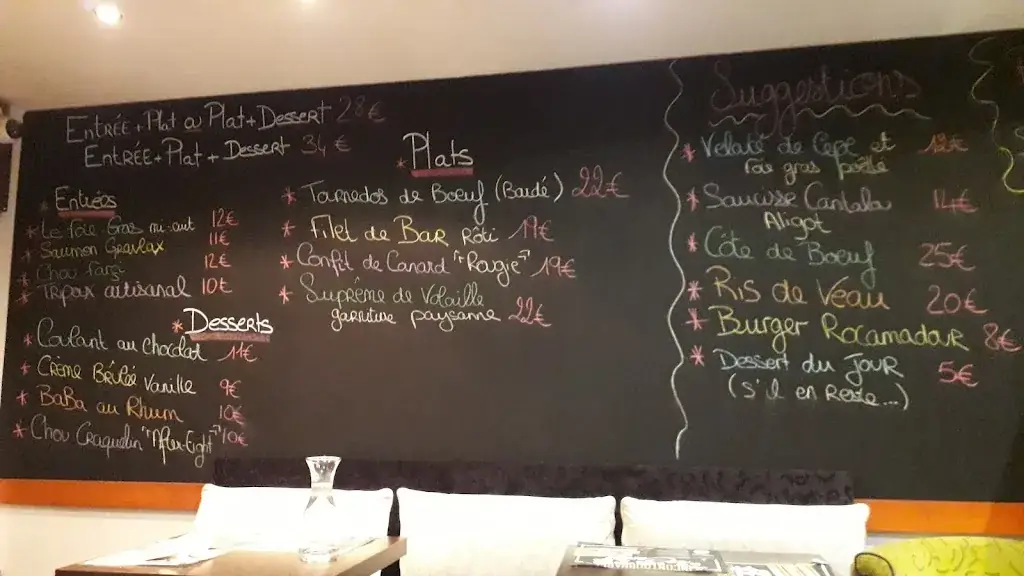 Entrée + Plat ou Plat + Dessert 28€
Entrée + Plat + Dessert 34€
* Entrées
* Le Foie Gras mi-cuit 12€
* Saumon Gravlax 11€
* Chou farci 12€
* Tripoux artisanal 10€
* Desserts
* Coulant au chocolat 11€
* Crème Brûlée Vanille 9€
* BaBa au Rhum 10€
* Chou Craquelin "After-Eight" 10€
* Plats
* Tournedos de Boeuf (Bardé) 22€
* Filet de Bar Rôti 19€
* Confit de Canard "Rougié" 19€
* Suprême de Volaille
garniture paysanne 22€
Suggestions
* Velouté de Cèpe et
Foie gras poêlé 13€
* Saucisse Cantal
Aligot 14€
* Côte de Boeuf 25€
* Ris de Veau 20€
* Burger Rocamadour 8€
* Dessert du Jour 5€
(s'il en Reste...)